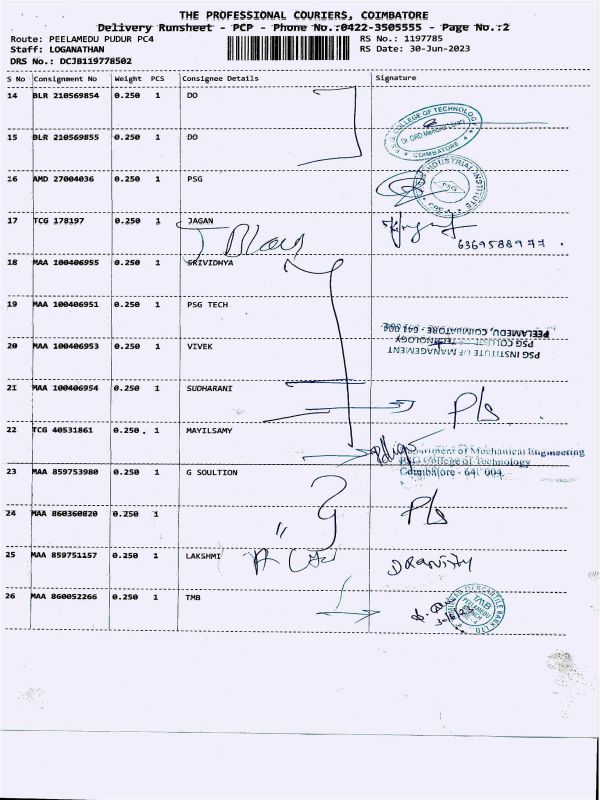 THE PROFESSIONAL COURIERS, COIMBATORE
Delivery Runsheet - PCP - Phone No.:0422-3505555 - Page No.:2
Route: PEELAMEDU PUDUR PC4 RS No.: 1197785
Staff: LOGANATHAN RS Date: 30-Jun-2023
DRS No.: DCJB119778502
S No Consignment No Weight PCS Consignee Details Signature
14 BLR 210569854 0.250 1 DO
15 BLR 210569855 0.250 1 DO
P.S.G. COLLEGE OF TECHNOLOGY
COIMBATORE
16 AMD 27004036 0.250 1 PSG
PSG INDUSTRIAL INSTITUTE
PSG
17 TCG 178197 0.250 1 JAGAN
6369588977.
18 MAA 100406955 0.250 1 SRIVIDHYA
19 MAA 100406951 0.250 1 PSG TECH
PEELAMEDU, COIMBATORE - 641 004.
PSG COLLEGE OF TECHNOLOGY
20 MAA 100406953 0.250 1 VIVEK
PSG INSTITUTE OF MANAGEMENT
21 MAA 100406954 0.250 1 SUDHARANI
P/s
22 TCG 40531861 0.250 . 1 MAYILSAMY
Department of Mechanical Engineering
PSG College of Technology
Coimbatore - 641 004.
23 MAA 859753980 0.250 1 G SOULTION
24 MAA 860360820 0.250 1
P/s
25 MAA 859751157 0.250 1 LAKSHMI
26 MAA 860052266 0.250 1 TMB
TMB
PEELAMEDU